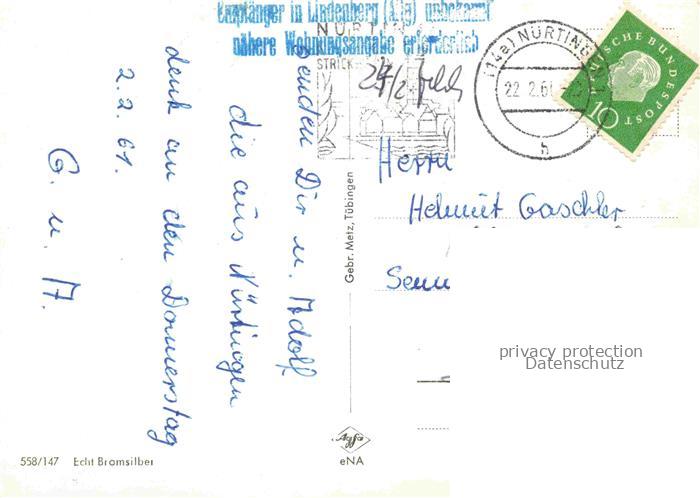 Empfänger in Lindenberg (Allg) unbekannt
nähere Wohnungsangabe erforderlich
NÜRTIN
STRICK
(14a) NÜRTINGEN
22.2.61
h
DEUTSCHE BUNDESPOST
10
senden Dir u. Adolf
die aus Nürtingen
denk an den Donnerstag
2. 2. 61.
G. u. A.
Gebr. Metz, Tübingen
Herrn
Helmut Gaschler
Senn
privacy protection
Datenschutz
Agfa
eNA
558/147 Echt Bromsilber